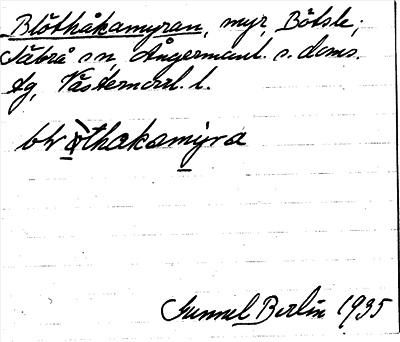 Blöthåkamyran, myr, Bölsle;
Säbrå sn, Ångermanl. s. doms.
tg, Västernorrl. l.
Gunnel Berlin 1935